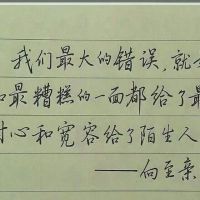 我们最大的错误,就
和最糟糕的一面都给了最
讨心和宽容给了陌生人
——向至亲